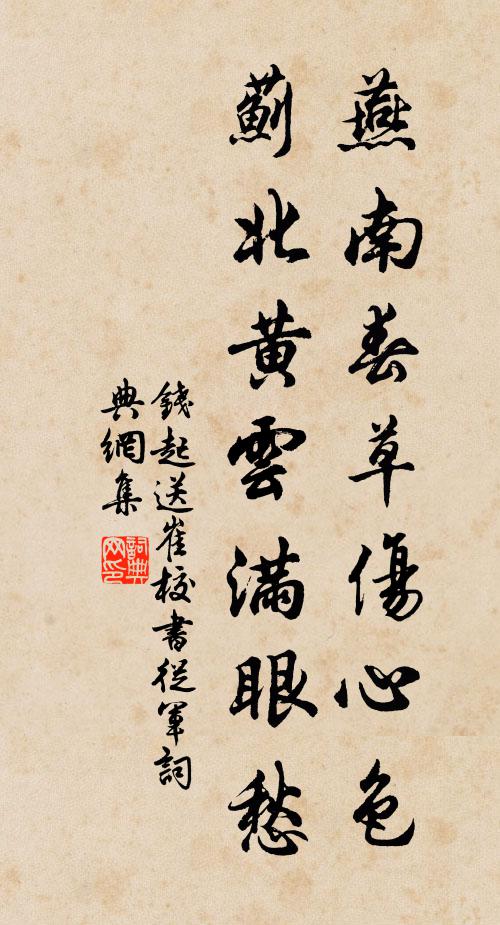 燕南春草傷心色
薊北黄雲滿眼愁
錢起送崔校書從軍詞
典網集
詞典網印